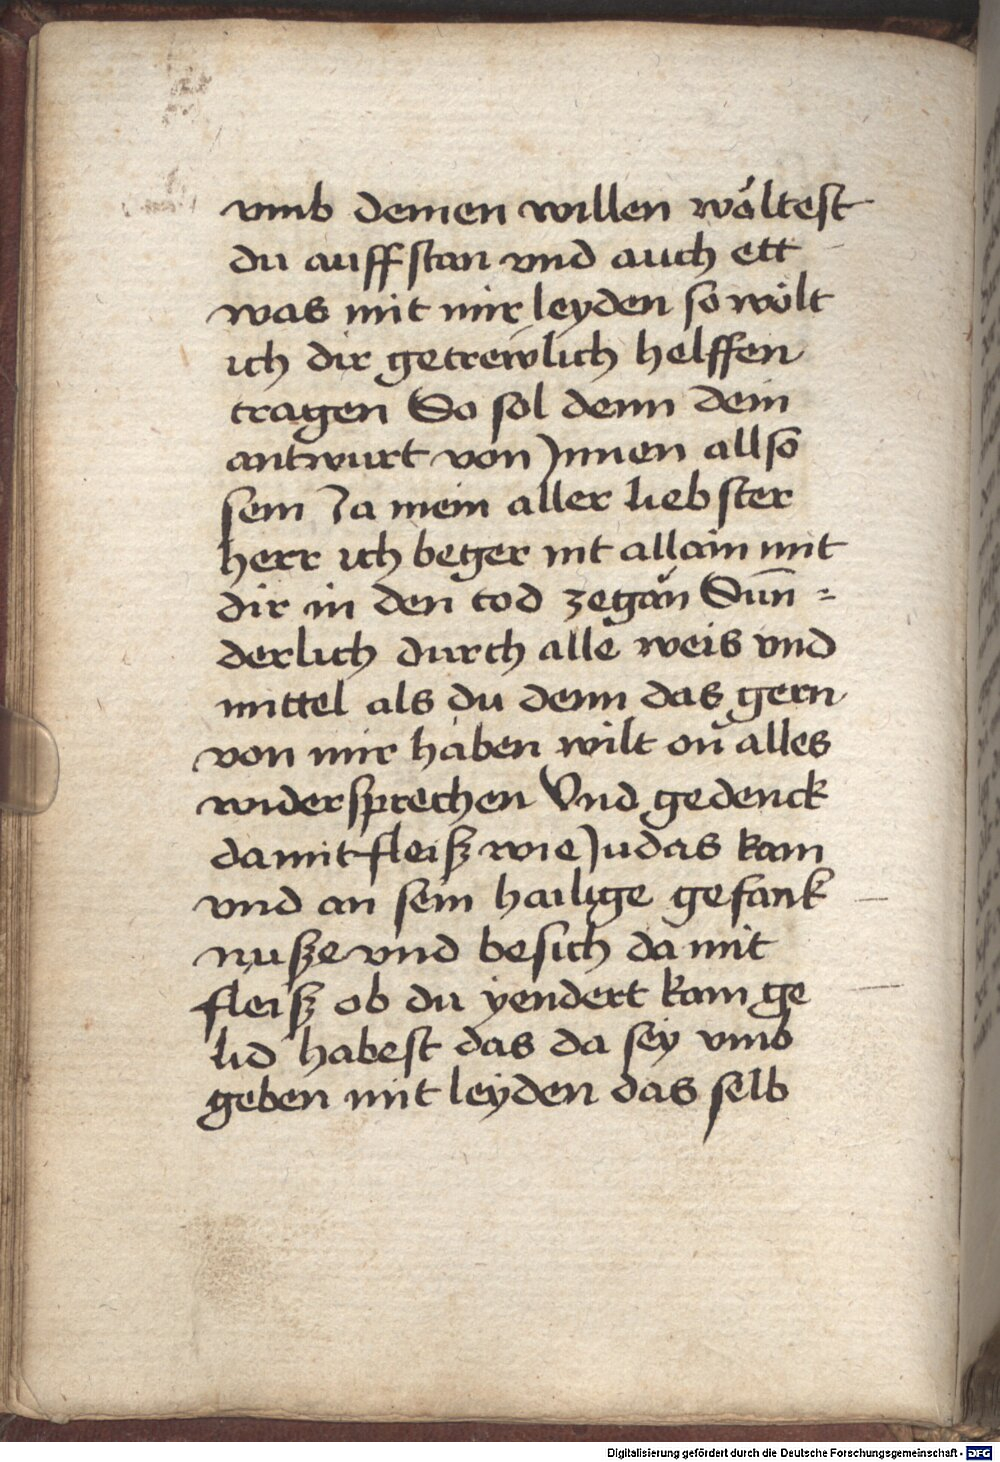 vmb deinen willen wöltest
du auff stan vnd auch ett
was mit mir leyden so wölt
ich dir getrewlich helffen
tragen So sol denn dein
antwurt von Jnnen allso
sein Ja mein aller liebster
herr ich beger nit allain mit
dir in den tod zegän Sun̄ =
derlich durch alle weis vnd
mittel als du denn das gern
von mir haben wilt on alles
widersprechen Vnd gedenck
da mit fleisz wie Judas kam
vnd an sein hailige gefank
nusze vnd besich da mit
fleisz ob du yendert kain ge
lid habest das da sey vmb
geben mit leyden das selb
Digitalisierung gefördert durch die Deutsche Forschungsgemeinschaft - DFG